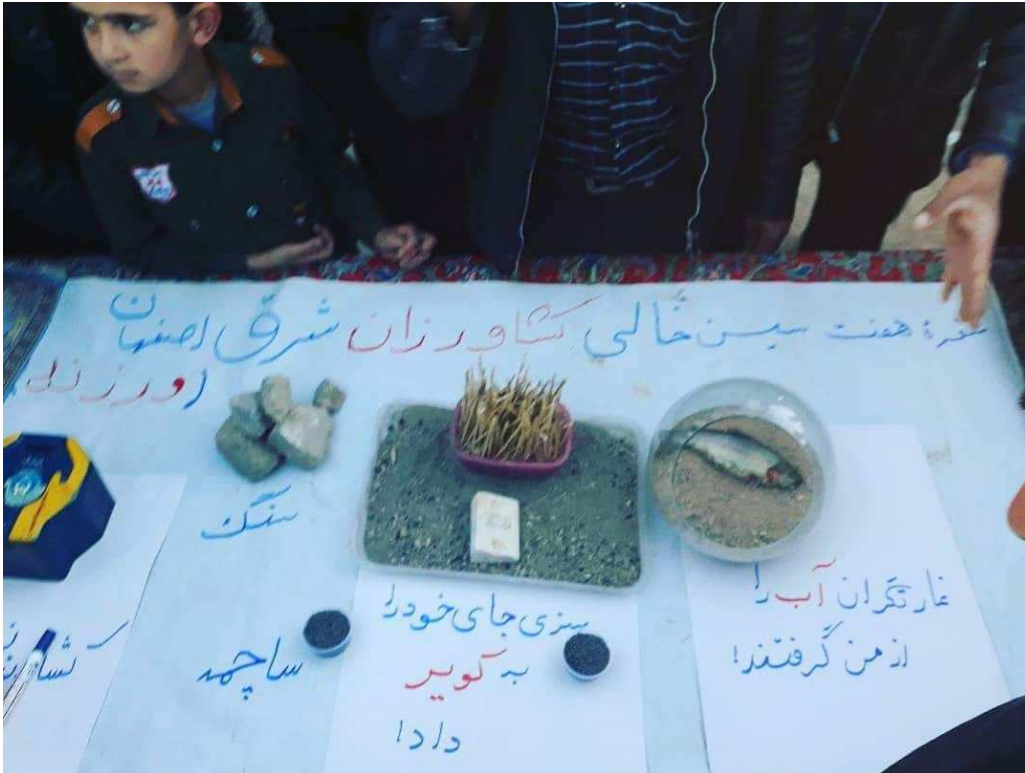 سفرهٔ هفت سین خالی کشاورزان شرق اصفهان
(ورزنه)
سنگ
ساچمه
سبزی جای خود را
به کویر
داد!
غارتگران آب را
از من گرفتند!